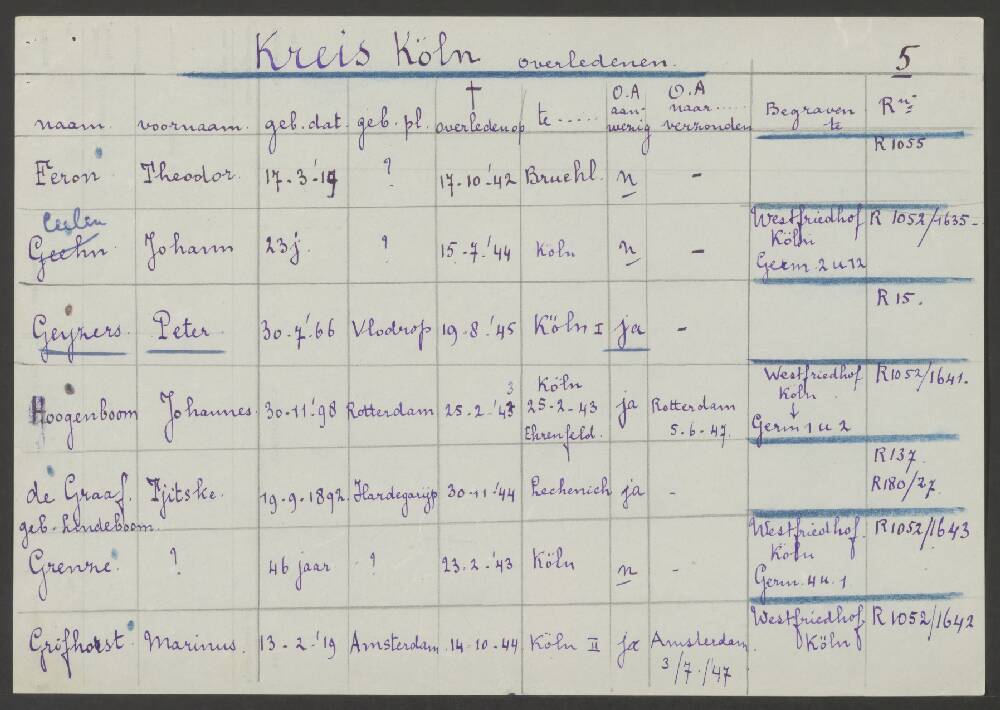 Kreis Köln overledenen. 5
naam. voornaam. geb. dat. geb. pl. † overleden op te ..... O.A aan-wezig O.A naar ..... verzonden Begraven te R nr
R 1055
Feron Theodor. 17-3-'19 ? 17-10-'42 Bruehl. n -
Ceelen
Geehn Johann 23 j. ? 15-7-'44 Köln n - Westfriedhof Köln Germ. 2 u 12 R 1052/1635-
R 15.
Geijzers. Peter 30-7-'66 Vlodrop 19-8-'45 Köln I ja -
Hoogenboom Johannes. 30-11-'98 Rotterdam 25-2-'43 Köln 25-2-43 Ehrenfeld. ja Rotterdam 5-6-47. Westfriedhof Köln ↓ Germ 1 u 2 R1052/1641.
R137.
de Graaf. Tjitske. 19-9-1892. Hardegarijp 30-11-'44 Lechenich ja - R180/27.
geb. Lindeboom.
Grenze. ? 46 jaar ? 23-2-'43 Köln n - Westfriedhof Köln Germ. 4 u. 1 R1052/1643
Gröfhorst Marinus. 13-2-'19 Amsterdam 14-10-44 Köln II ja Amsterdam 3/7-/'47 Westfriedhof Köln R 1052/1642